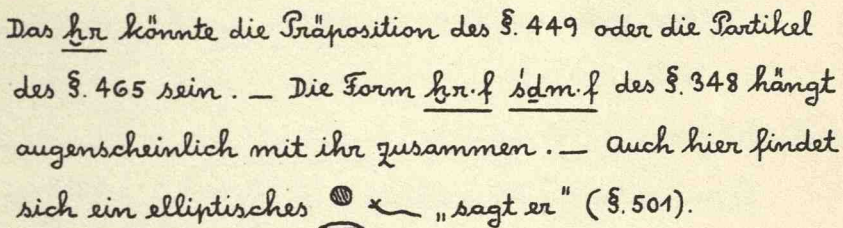 Das ḫr könnte die Präposition des §. 449 oder die Partikel
des §. 465 sein. — Die Form ḫr·f śḏm·f des §. 348 hängt
augenscheinlich mit ihr zusammen. — Auch hier findet
sich ein elliptisches 𓐍𓂋𓆑 „sagt er“ (§. 501).